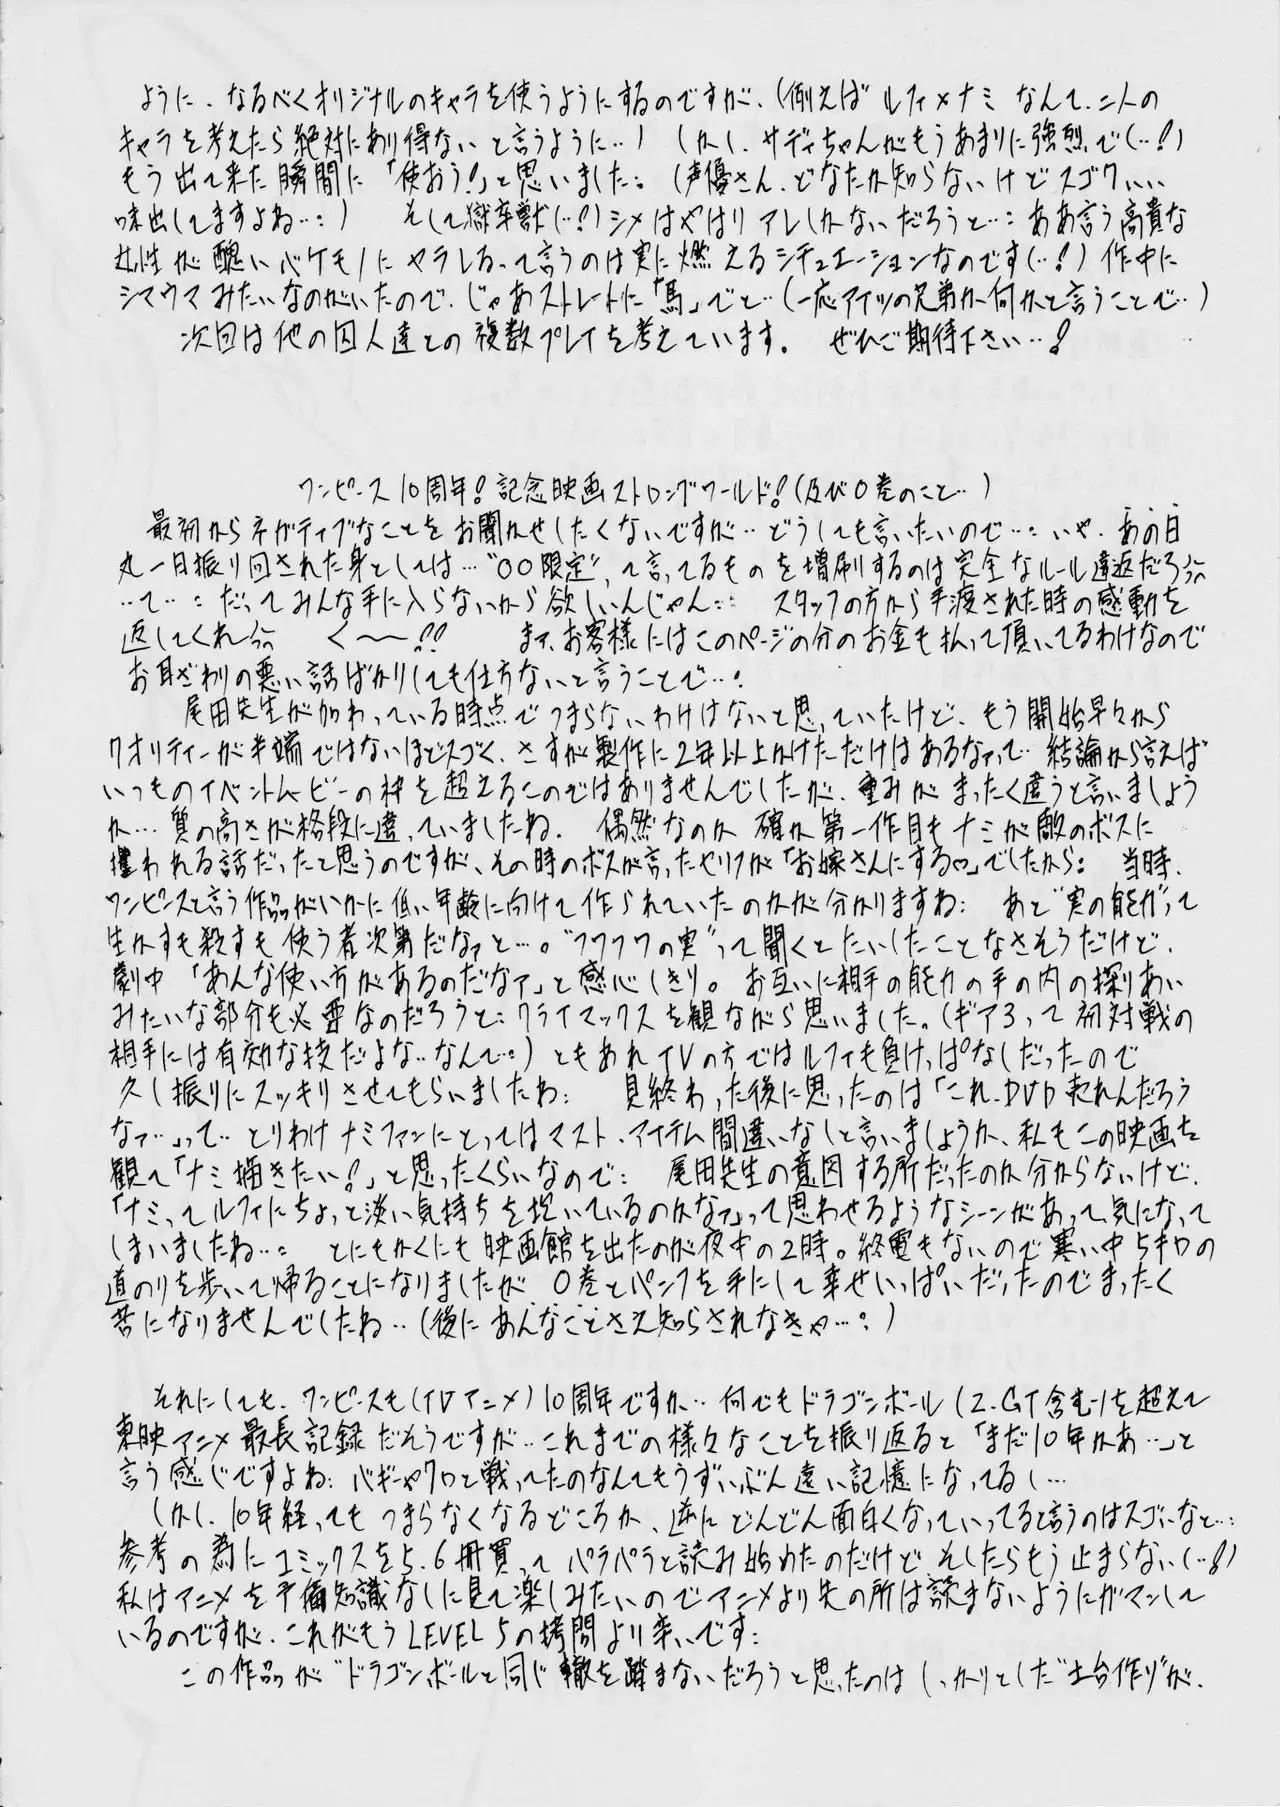 ように、なるべくオリジナルのキャラを使うようにするのですが、(例えば ルフィ×ナミ なんて、二人の
キャラを考えたら絶対にあり得ない と言うように…) しかし、サディちゃんがもうあまりに強烈で(…!)
もう出て来た瞬間に「使おう!」と思いました… (声優さん、どなたか知らないけどスゴクいい
味出してますよね…) そして獄卒獣(…!) シメはやはりアレしかないだろうと… ああ言う高貴な
女性が醜いバケモノにヤラレるって言うのは実に燃えるシチュエーションなのです(…!) 作中に
シマウマみたいなのがいたので、じゃあストレートに「馬」でと…(一応アイツの兄弟か何かと言うことで…)
次回は他の囚人達との複数プレイを考えています。 ぜひご期待下さい…!
ワンピース10周年! 記念映画ストロングワールド!(及び0巻のこと…)
最初からネガティブなことをお聞かせしたくないですが… どうしても言いたいので… いや、あの日
丸一日振り回された身としては… "○○限定"って言ってるものを増刷するのは完全なルール違反だろ
…って… だってみんな手に入らないから欲しいんじゃん… スタッフの方から手渡された時の感動を
返してくれ く〜〜!! まァ、お客様にはこのページの分のお金も払って頂いてるわけなので
お耳ざわりの悪い話ばかりしても仕方ないと言うことで…
尾田先生が加わっている時点でつまらないわけはないと思っていたけど、もう開始早々から
クオリティーが半端ではないほどスゴく、さすが製作に2年以上かけただけはあるなァって… 結論から言えば
いつものイベントムービーの枠を超えるものではありませんでしたが、重みがまったく違うと言いましょう
か… 質の高さが格段に違っていましたね、 偶然なのか 確か第一作目もナミが敵のボスに
攫われる話だったと思うのですが、その時のボスが言ったセリフが「お嫁さんにする♡」でしたから… 当時、
ワンピースと言う作品がいかに低い年齢に向けて作られていたのかが分かりますね… あと"実の能力"って
生かすも殺すも使う者次第だなァと…。"フワフワの実"って聞くとたいしたことなさそうだけど、
劇中「あんな使い方があるのだなァ」と感心しきり。お互いに相手の能力の手の内の探りあい
みたいな部分も必要なのだろうと… クライマックスを観ながら思いました。(ギア3って初対戦の
相手には有効な技だよな…なんて…) ともあれTVの方ではルフィも負けっぱなしだったので
久し振りにスッキリさせてもらいましたね… 見終わった後に思ったのは「これ、DVD売れんだろう
なァ…」って… とりわけナミファンにとってはマスト・アイテム間違いなしと言いましょうか、私もこの映画を
観て「ナミ描きたい!」と思ったくらいなので… 尾田先生の意図する所だったのか分からないけど、
「ナミってルフィにちょっと淡い気持ちを抱いているのかなァ」って思わせるようなシーンがあって、気になって
しまいましたね… とにもかくにも映画館を出たのが夜中の2時。終電もないので寒い中5キロの
道のりを歩いて帰ることになりましたが 0巻とパンフを手にして幸せいっぱいだったのでまったく
苦になりませんでしたね…(後にあんなことさえ知らされなきゃ…)
それにしても、ワンピースも(TVアニメ)10周年ですか… 何でもドラゴンボール(Z・GT含む)を超えて
東映アニメ最長記録だそうですが… これまでの様々なことを振り返ると「まだ10年かあ…」と
言う感じですよね… バギーやクロと戦ってたのなんてもうずいぶん遠い記憶になってるし…
しかし、10年経ってもつまらなくなるどころか、逆にどんどん面白くなっていってると言うのはスゴいなと…
参考の為にコミックスを5、6冊買ってパラパラと読み始めたのだけど そしたらもう止まらない(…!)
私はアニメを予備知識なしに見て楽しみたいのでアニメより先の所は読まないようにガマンして
いるのですが、これがもうLEVEL5の拷問より辛いです…
この作品が"ドラゴンボールと同じ轍を踏まないだろうと思ったのはしっかりとした"土台作り"が、